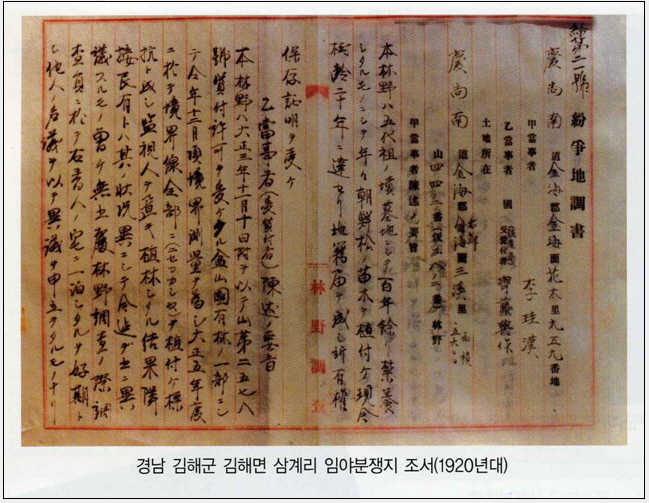 第二號 紛爭地調書
慶尚南道金海郡金海面花木里九五九番地
甲當事者 李珪漢
乙當事者 國
土地所在
慶尚南道金海郡金海面三溪里
山四四三番 林野
甲當事者陳述ノ要旨
本林野ハ五代祖ノ墳墓地ニシテ百年餘 禁養
シタルモノニシテ年々朝鮮松ノ苗木ヲ植付ケ現今
松齡二十年ニ達セリ地籍届ヲ為シ所有權
保存証明ヲ受ケ
林野調査
乙當事者 陳述ノ要旨
本林野ハ大正三年十一月十日附ヲ以テ山第二五七八
號貸付許可ヲ受ケタル金山國有林ノ一部ニシ
テ今年十二月頃境界測量ヲ為シ大正五年度
ニ於テ境界線全部ニ ヲ植付ケ標
ヲ置キ植林シタル結果隣
接民有トハ其ノ狀況異ニシテ
議スルモノ 無 林野調査ノ際調
査員ニ於テ 宅ニ一泊シタルヲ好期ト
シ他人ノ名義ヲ以テ異議ヲ申立タルモノナリ
경남 김해군 김해면 삼계리 임야분쟁지 조서(1920년대)